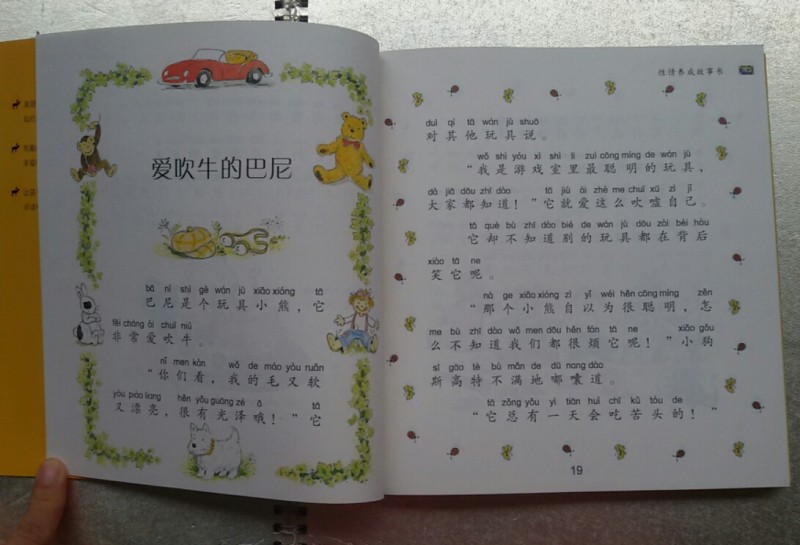 爱吹牛的巴尼
bā ní shì gè wán jù xiǎo xióng tā
巴尼是个玩具小熊，它
fēi cháng ài chuī niú
非常爱吹牛。
nǐ men kàn wǒ de máo yòu ruǎn
“你们看，我的毛又软
yòu piào liang hěn yǒu guāng zé ō tā
又漂亮，很有光泽哦！”它
性情养成故事书
duì qí tā wán jù shuō
对其他玩具说。
wǒ shì yóu xì shì lǐ zuì cōng míng de wán jù
“我是游戏室里最聪明的玩具，
dà jiā dōu zhī dào tā jiù ài zhè me chuī xū zì jǐ
大家都知道！”它就爱这么吹嘘自己。
tā què bù zhī dào bié de wán jù dōu zài bèi hòu
它却不知道别的玩具都在背后
xiào tā ne
笑它呢。
nà ge xiǎo xióng zì yǐ wéi hěn cōng míng zěn
“那个小熊自以为很聪明，怎
me bù zhī dào wǒ men dōu hěn fán tā ne xiǎo gǒu
么不知道我们都很烦它呢！”小狗
sī gāo tè bù mǎn de dū nang dào
斯高特不满地嘟囔道。
tā zǒng yǒu yì tiān huì chī kǔ tóu de
“它总有一天会吃苦头的！”
19